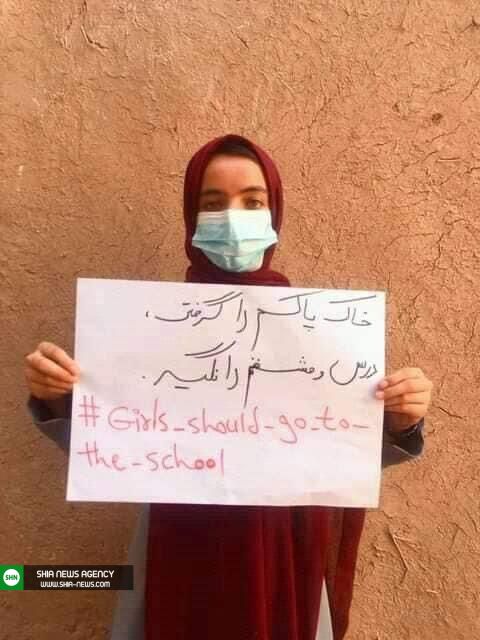 خاک پاکم را گرفتی،
درس و مشقم را نگیر.
#Girls_should_go_to_
the_school
SHN
SHIA NEWS AGENCY
WWW.SHIA-NEWS.COM